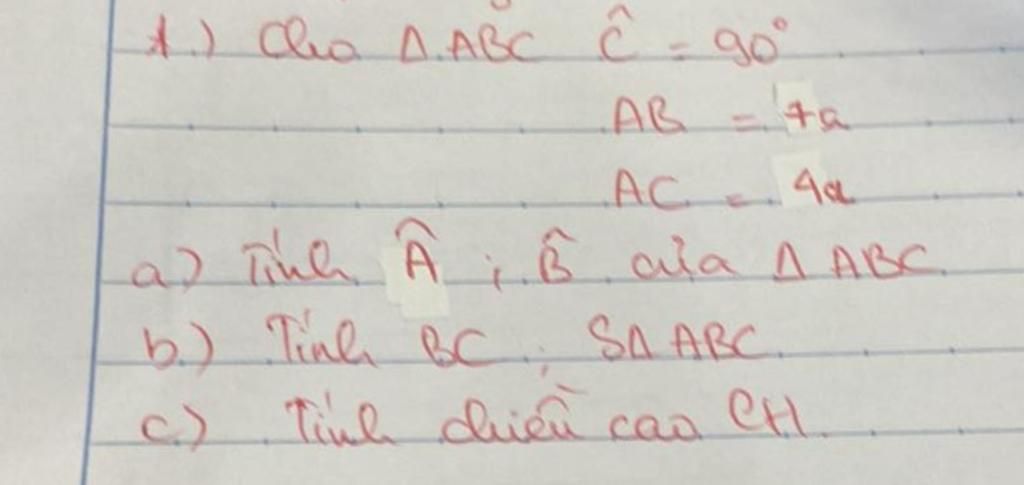 1.) Cho Δ ABC Ĉ = 90°
AB = 7a
AC = 4a
a.) Tính Â ; B̂ của Δ ABC
b.) Tính BC ; SΔ ABC.
c.) Tính chiều cao CH.